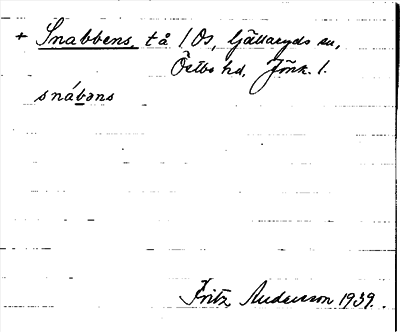 + Snabbens, tå / Os, Gällaryds sn,
Östbo hd, Jönk. l.
snábəns
Fritz Anderson 1939.